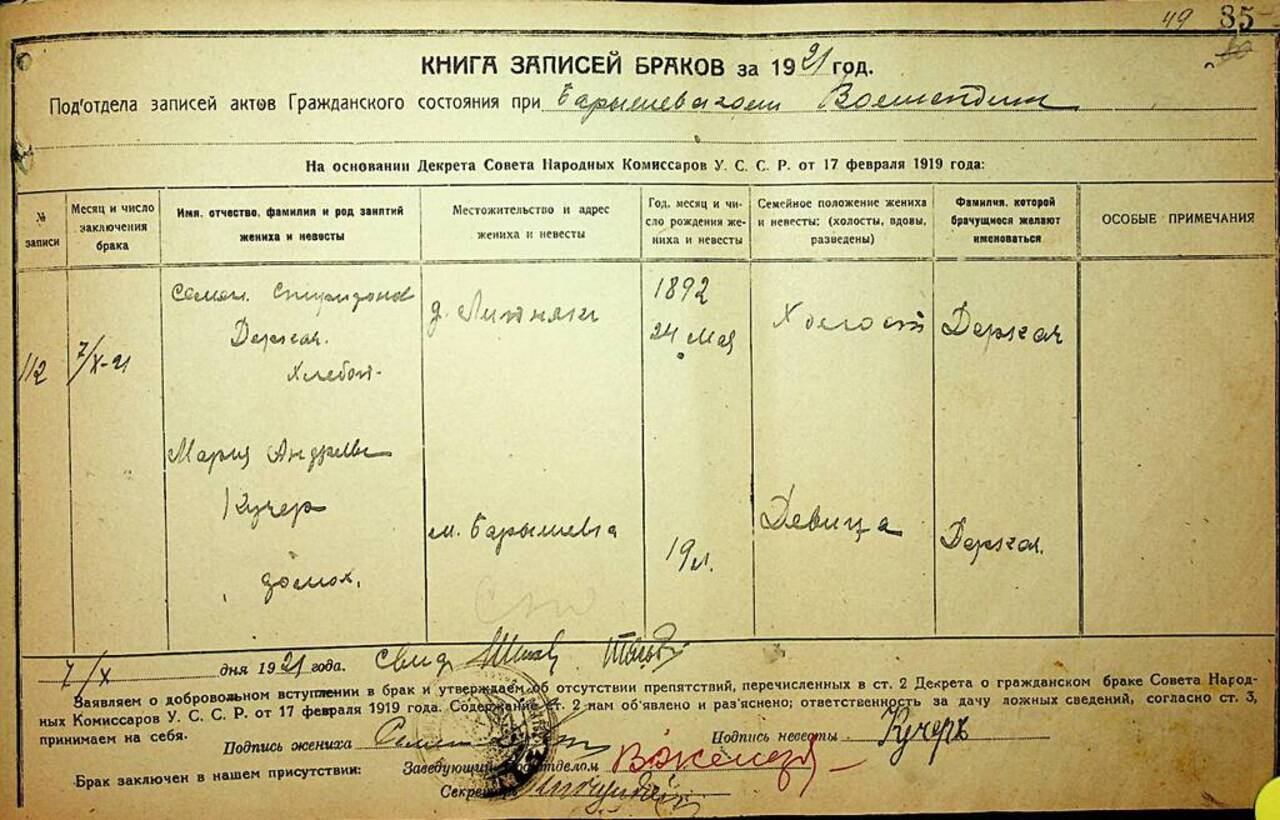 49 35
КНИГА ЗАПИСЕЙ БРАКОВ за 1921 год.
Под'отдела записей актов Гражданского состояния при Барышевском
На основании Декрета Совета Народных Комиссаров У. С. С. Р. от 17 февраля 1919 года:
№ записи
Месяц и число заключения брака
Имя, отчество, фамилия и род занятий жениха и невесты
Местожительство и адрес жениха и невесты
Год, месяц и число рождения жениха и невесты
Семейное положение жениха и невесты; (холосты, вдовы, разведены)
Фамилия, которой брачущиеся желают именоваться
ОСОБЫЕ ПРИМЕЧАНИЯ
112
7/X-21
Семен Спиридонов
Деркач.
Хлебоп-
д. Лихняки
1892
24 мая
Холост
Деркач
Мария Андреевн
Кучер
домох.
м. Барышевка
19 л.
Девица
Деркач.
7/X дня 1921 года.
Заявляем о добровольном вступлении в брак и утверждаем об отсутствии препятствий, перечисленных в ст. 2 Декрета о гражданском браке Совета Народ-
ных Комиссаров У. С. С. Р. от 17 февраля 1919 года. Содержание ст. 2 нам об'явлено и раз'яснено; ответственность за дачу ложных сведений, согласно ст. 3,
принимаем на себя.
Подпись жениха Подпись невесты Кучеръ
Брак заключен в нашем присутствии: Заведующий Подотделом
Секретарь